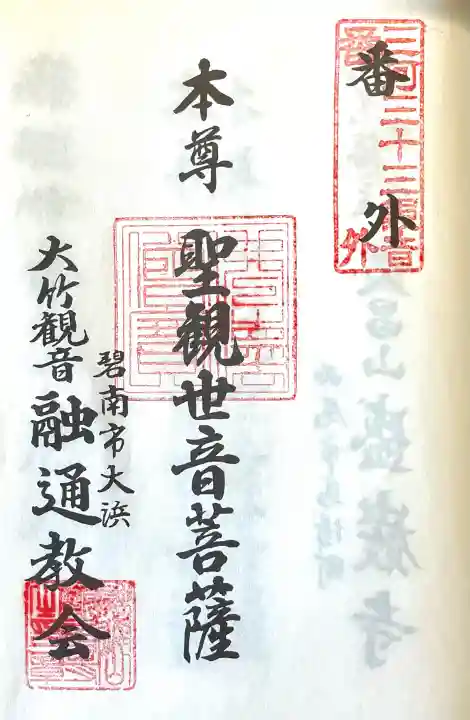 番外
三河三十三観音
番外
本尊
聖観世音菩薩
碧南市大浜
大竹観音
融通教会